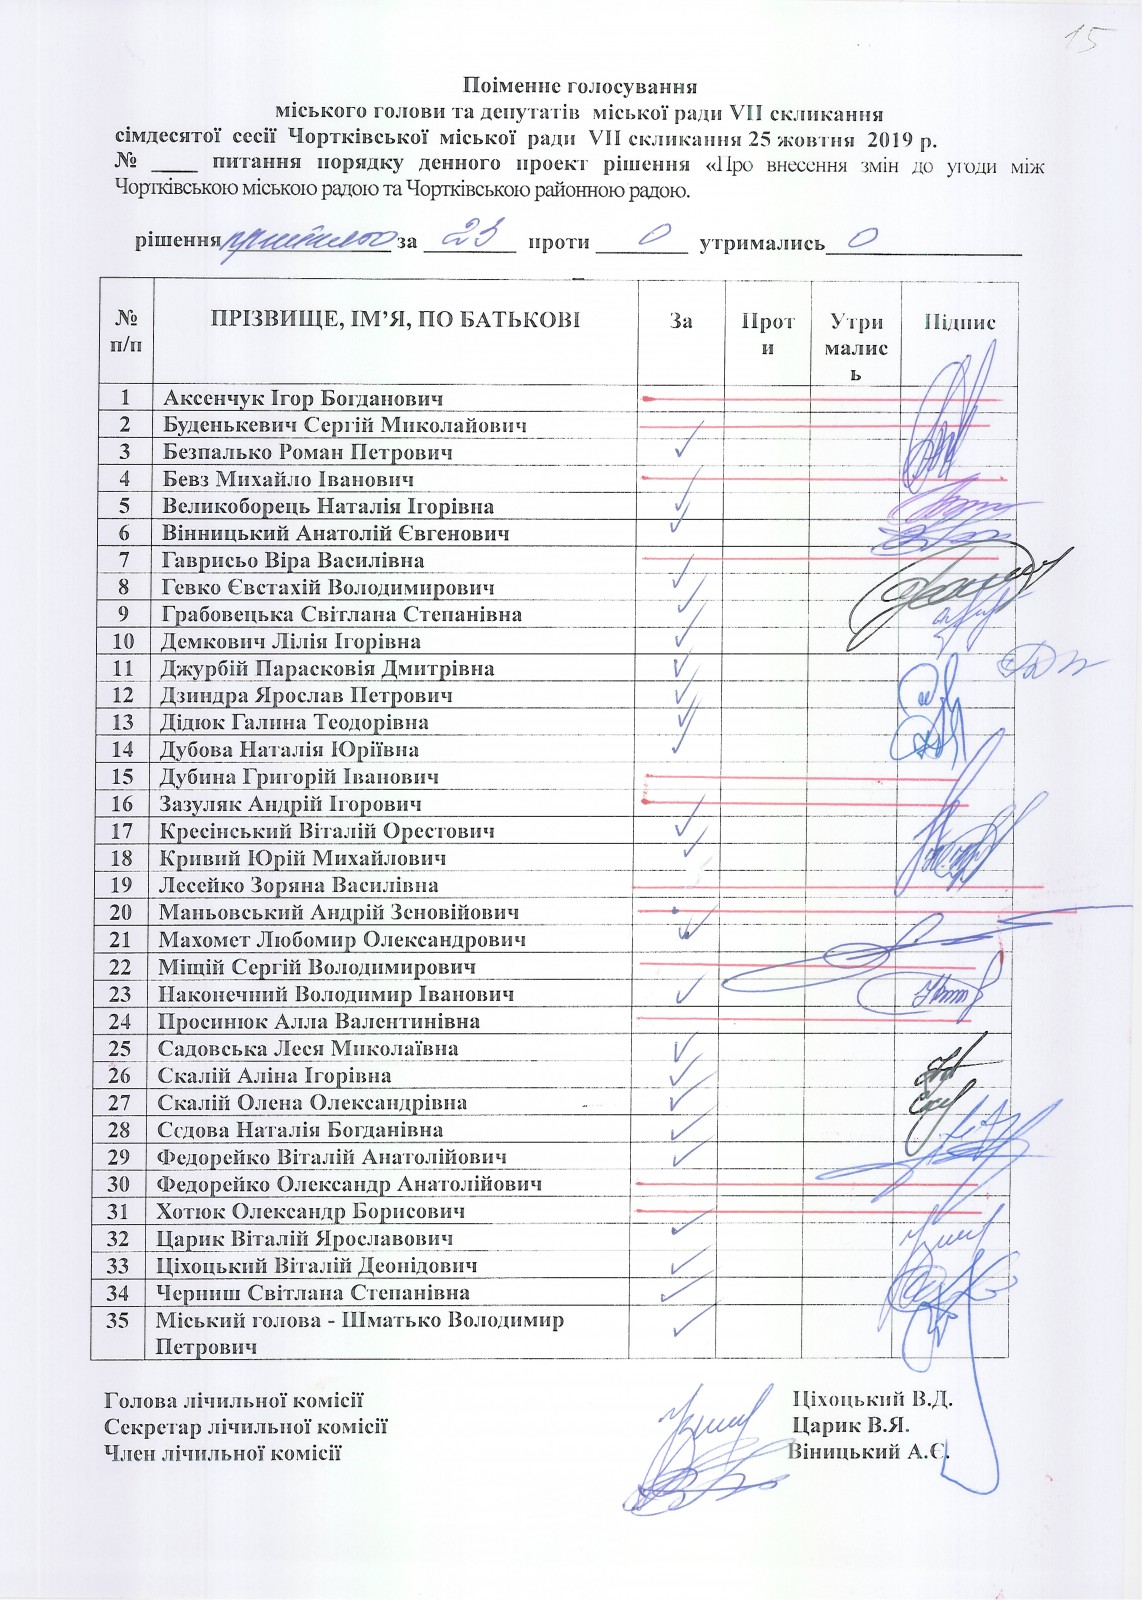 15
Поіменне голосування
міського голови та депутатів міської ради VII скликання
сімдесятої сесії Чортківської міської ради VII скликання 25 жовтня 2019 р.
№ ____ питання порядку денного проект рішення «Про внесення змін до угоди між
Чортківською міською радою та Чортківською районною радою.
рішення прийнято за 23 проти 0 утримались 0
№ п/п ПРІЗВИЩЕ, ІМ’Я, ПО БАТЬКОВІ За Проти УтрималисЬ Підпис
1 Аксенчук Ігор Богданович
2 Буденькевич Сергій Миколайович
3 Безпалько Роман Петрович ✓
4 Бевз Михайло Іванович
5 Великоборець Наталія Ігорівна ✓
6 Вінницький Анатолій Євгенович ✓
7 Гаврисьо Віра Василівна
8 Гевко Євстахій Володимирович ✓
9 Грабовецька Світлана Степанівна ✓
10 Демкович Лілія Ігорівна ✓
11 Джурбій Парасковія Дмитрівна ✓
12 Дзиндра Ярослав Петрович ✓
13 Дідюк Галина Теодорівна ✓
14 Дубова Наталія Юріївна ✓
15 Дубина Григорій Іванович
16 Зазуляк Андрій Ігорович
17 Кресінський Віталій Орестович ✓
18 Кривий Юрій Михайлович ✓
19 Лесейко Зоряна Василівна
20 Маньовський Андрій Зеновійович
21 Махомет Любомир Олександрович ✓
22 Міщій Сергій Володимирович
23 Наконечний Володимир Іванович ✓
24 Просинюк Алла Валентинівна
25 Садовська Леся Миколаївна ✓
26 Скалій Аліна Ігорівна ✓
27 Скалій Олена Олександрівна ✓
28 Сєдова Наталія Богданівна ✓
29 Федорейко Віталій Анатолійович ✓
30 Федорейко Олександр Анатолійович
31 Хотюк Олександр Борисович
32 Царик Віталій Ярославович ✓
33 Ціхоцький Віталій Деонідович ✓
34 Черниш Світлана Степанівна ✓
35 Міський голова - Шматько Володимир ✓
Петрович
Голова лічильної комісії Ціхоцький В.Д.
Секретар лічильної комісії Царик В.Я.
Член лічильної комісії Віницький А.Є.